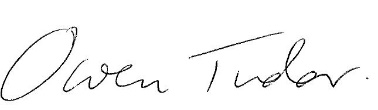 Owen Tudor.